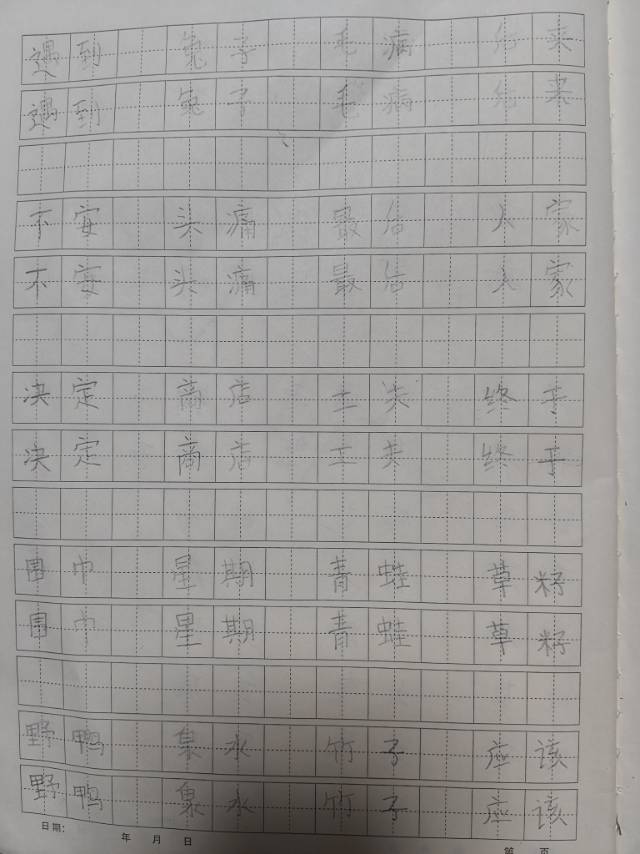 遇到 兔子 毛病
遇到 兔子 毛病
不安 头痛 最后 人家
不安 头痛 最后 人家
决定 商店 工夫 终于
决定 商店 工夫 终于
围巾 星期 青蛙 草籽
围巾 星期 青蛙 草籽
野鸭 泉水 竹子 应该
野鸭 泉水 竹子 应该
日期: 年 月 日 第 页